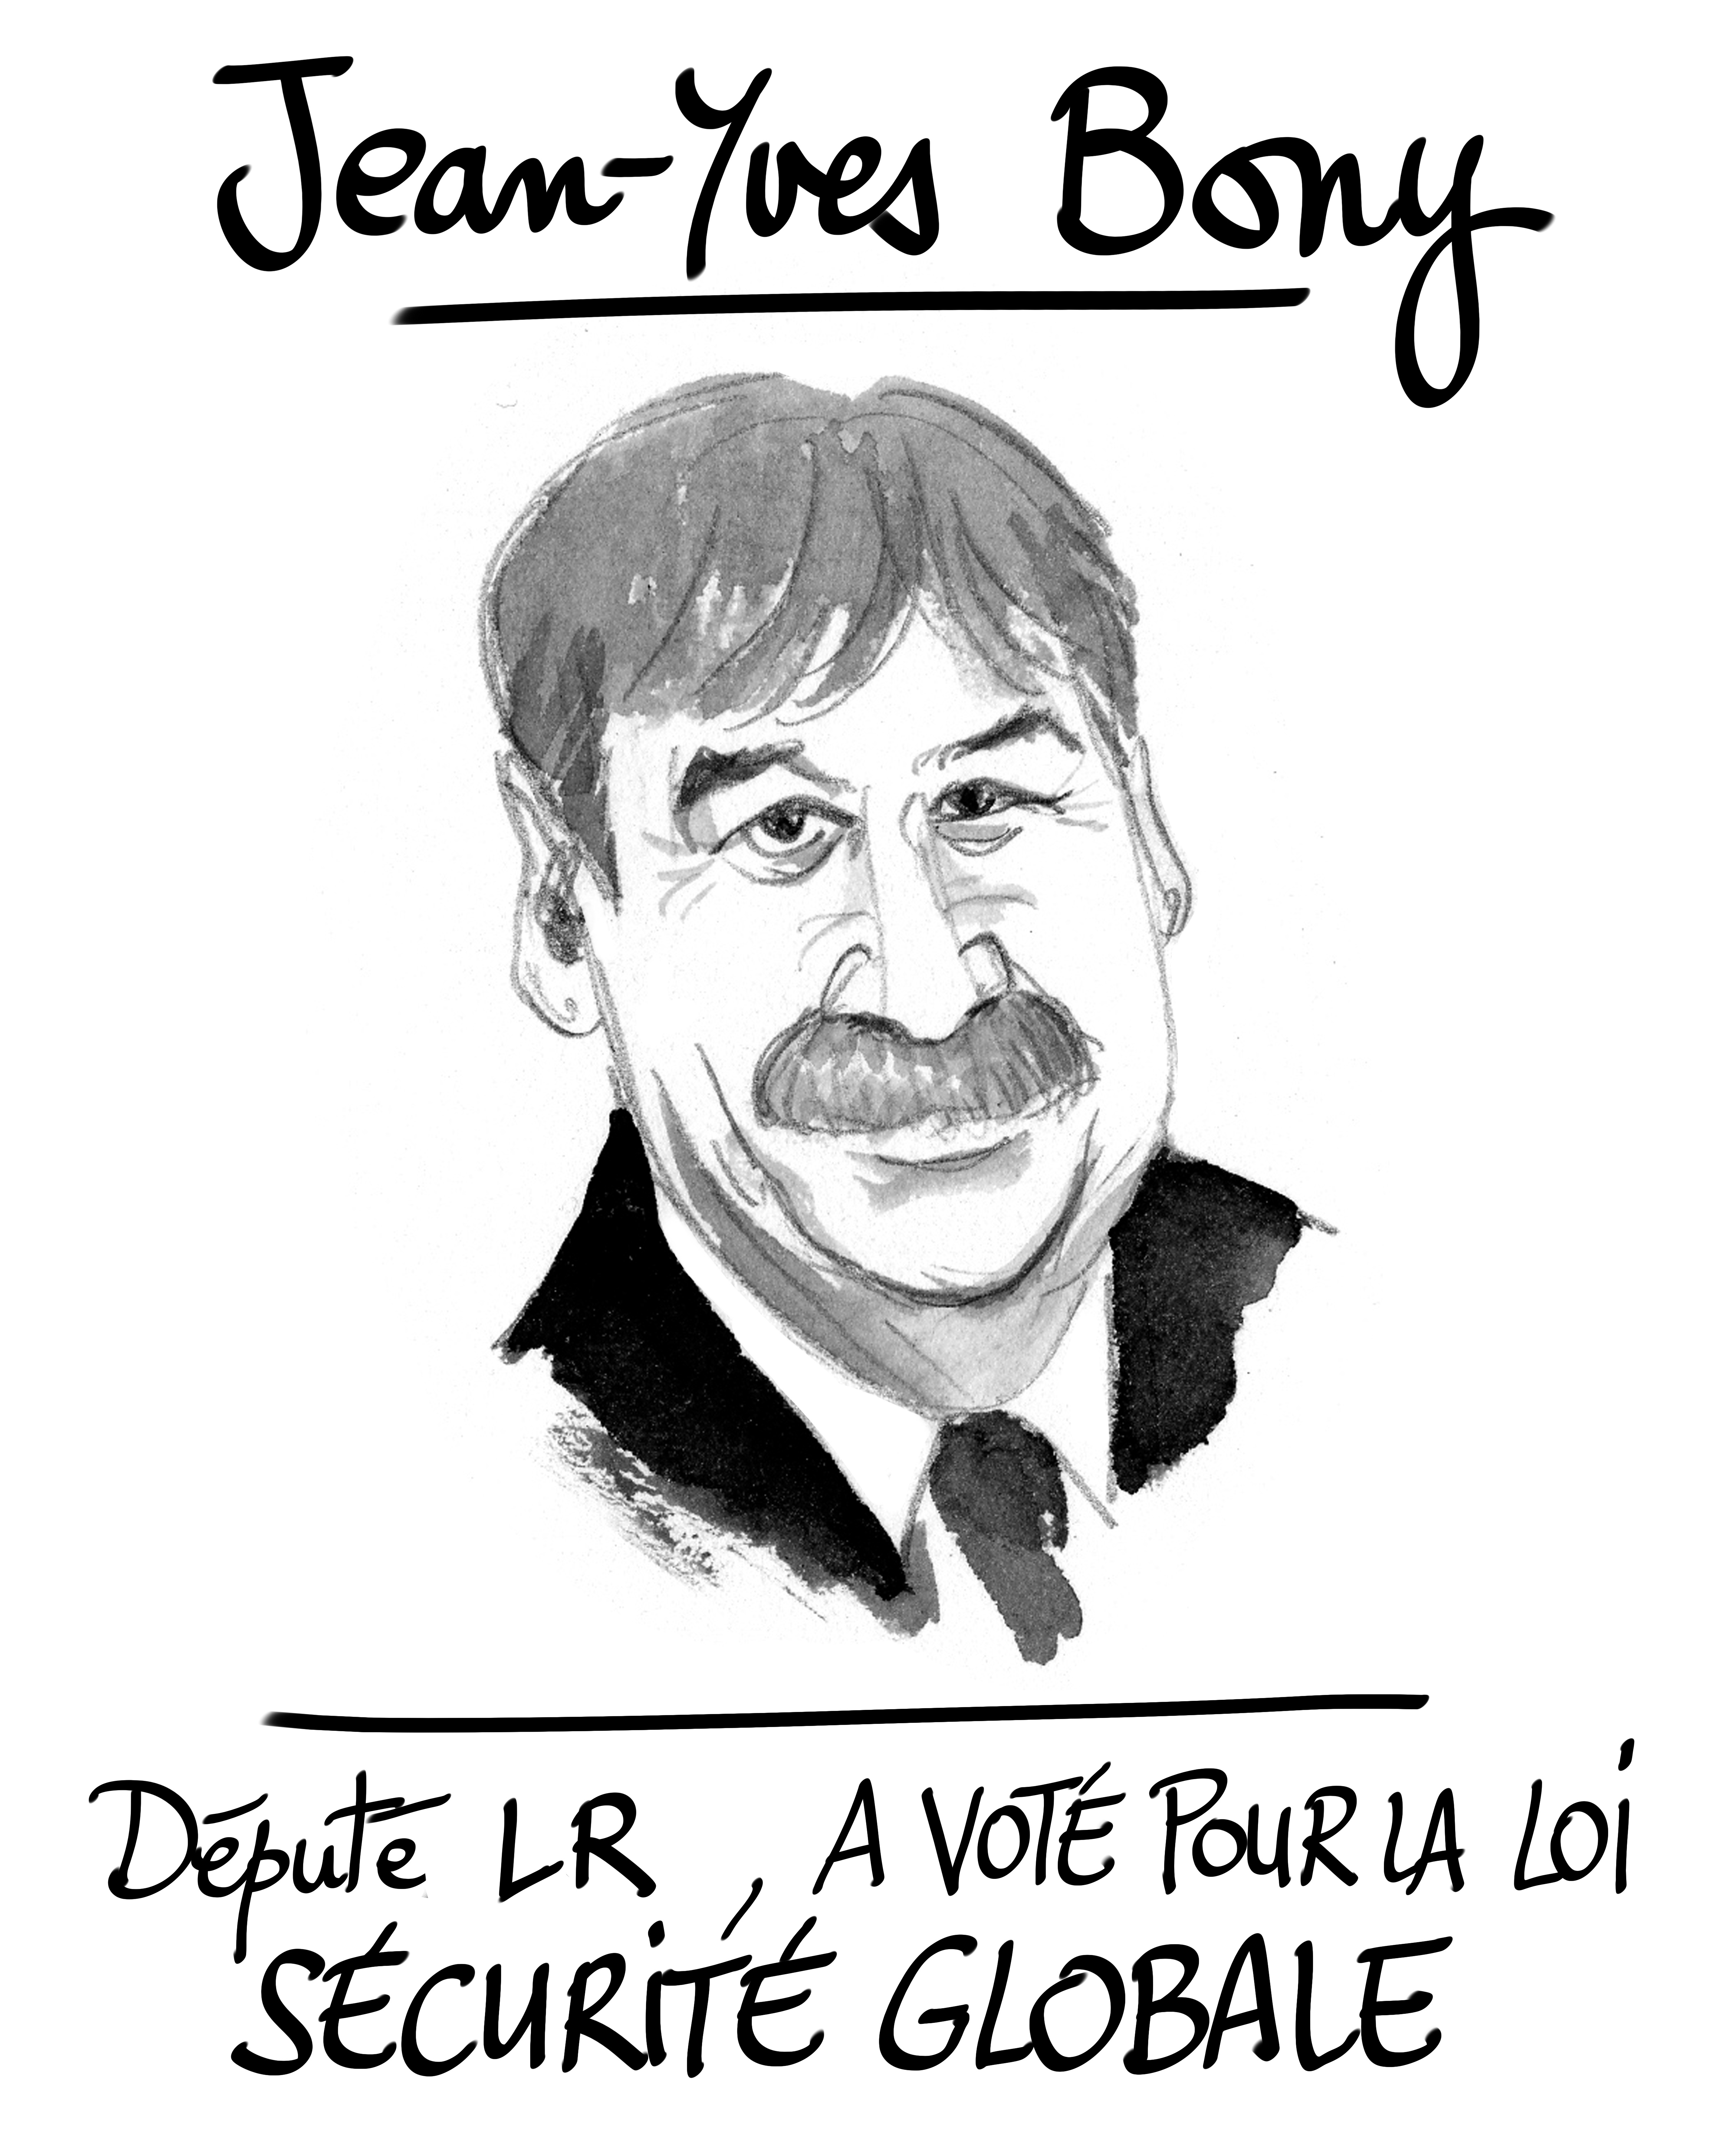 Jean-Yves Bony
Député LR, A VOTÉ POUR LA LOI
SÉCURITÉ GLOBALE